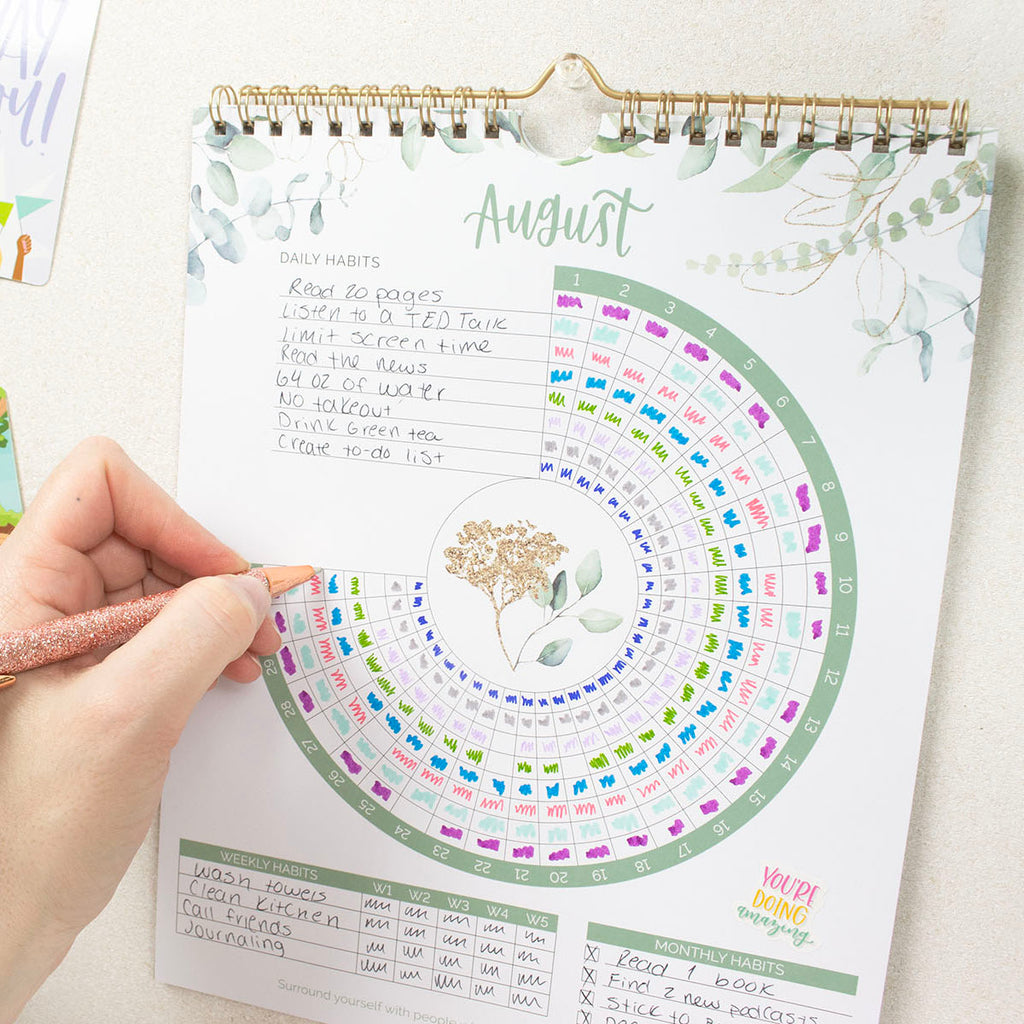 August
DAILY HABITS
Read 20 pages
Listen to a TED Talk
Limit screen time
Read the news
64 oz of water
No takeout
Drink Green tea
Create to-do list
1
2
3
4
5
6
7
8
9
10
11
13
14
15
16
17
18
19
20
21
22
23
24
25
26
27
28
29
WEEKLY HABITS W1 W2 W3 W4 W5
Wash towels
Clean Kitchen
Call friends
Journaling
Surround yourself with people
YOU'RE
DOING
amazing.
MONTHLY HABITS
X Read 1 book
X Find 2 new podcasts
X Stick to